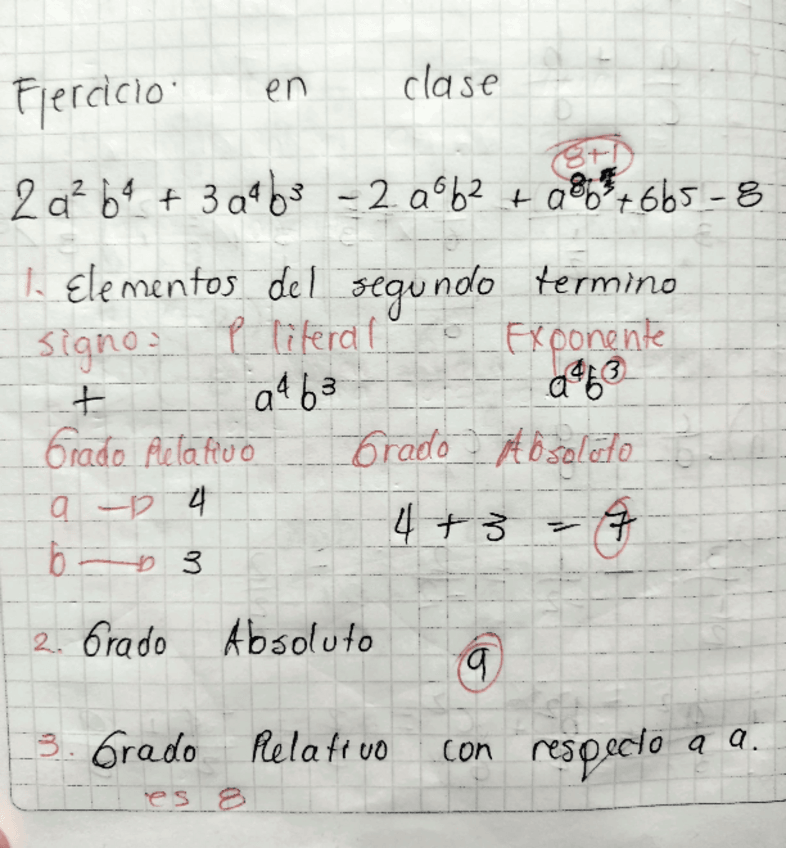 Ejercicio en clase
8+1
2a² b⁴ + 3a⁴b³ - 2 a⁶b² + a⁸b + 6b5 - 8
1. Elementos del segundo termino
signo: P literal Exponente
+ a⁴b³ a⁴b³
Grado Relativo Grado Absoluto
a → 4
4 + 3 = 7
b → 3
2. Grado Absoluto 9
3. Grado Relativo con respecto a a.
es 8